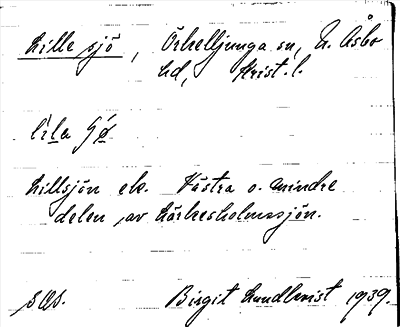 Lille sjö, Örkelljunga sn, N. Åsbo
hd, Krist. l.
lila sjø
Lillsjön ek. Västra o. mindre
delen av Lärkesholmssjön.
Birgit Lundkvist 1939.